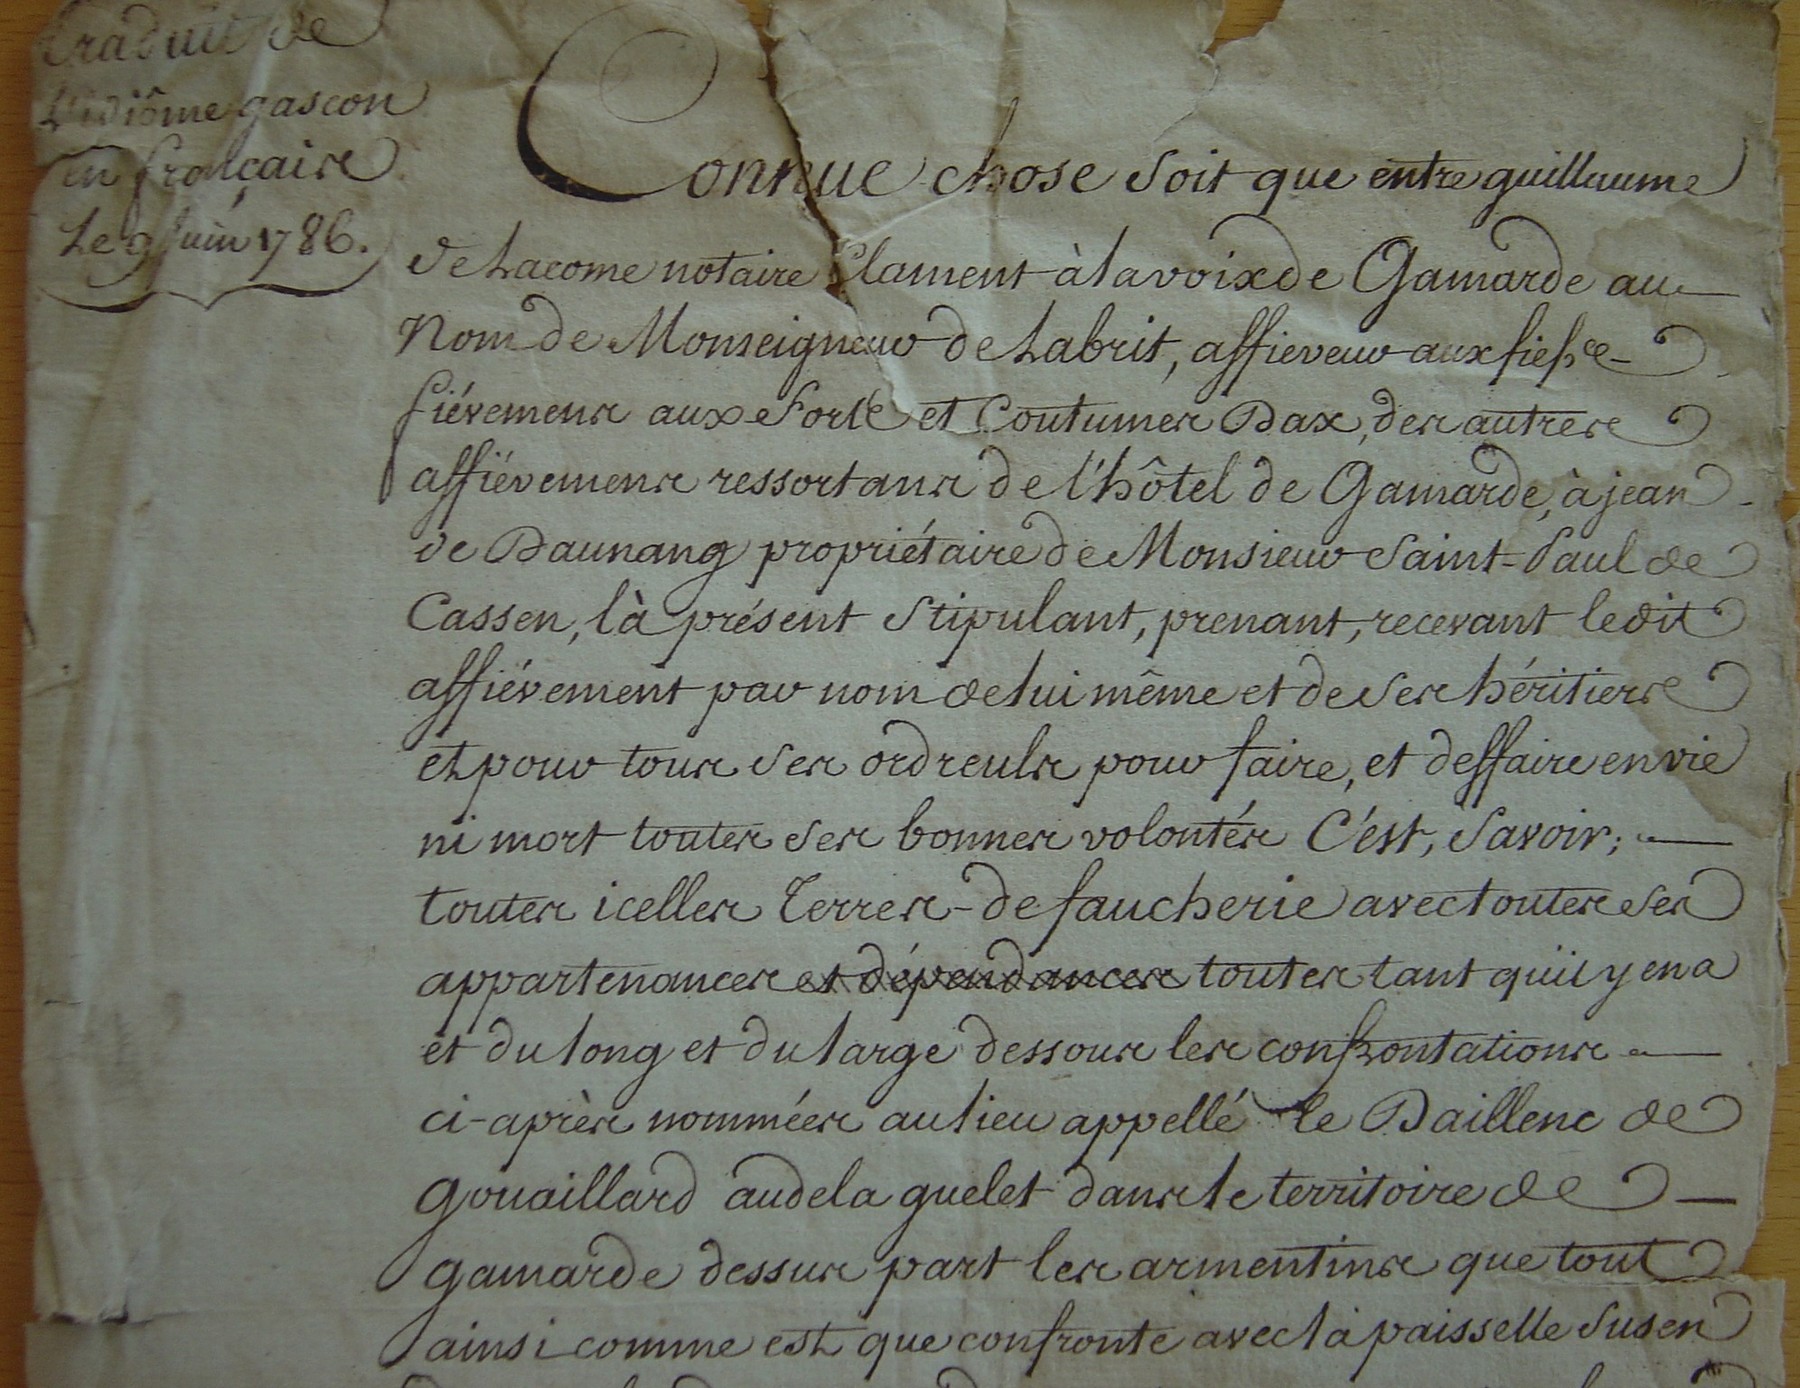 Traduit de
L'idiôme gascon
en français
Le 9 Juin 1786.
Connue chose soit que entre guillaume
de Lacome notaire Clament à la voix de Gamarde au
Nom de Monseigneur de Labrit, affieveur aux fiefs
fiévemens aux fors et Coutumes Dax, des autres
affiévemens ressortans de l'hôtel de Gamarde, à jean
de Daunang propriétaire de Monsieur Saint-Paul de
Cassen, là présent Stipulant, prenant, recevant ledit
affiévement par nom de lui même et de ses héritiers
et pour tous ses ordreuls pour faire, et deffaire en vie
ni mort toutes ses bonnes volontés C'est, Savoir;
toutes icelles Terres de faucherie avec toutes ses
appartenances et dépendances toutes tant qu'il y en a
et du long et du large dessous les confrontations
ci-après nommées au lieu appellé le Daillenc de
gouaillard audela guelet dans le territoire de
gamarde dessus part les armentins que tout
ainsi comme est que confronte avec la paisselle Susen